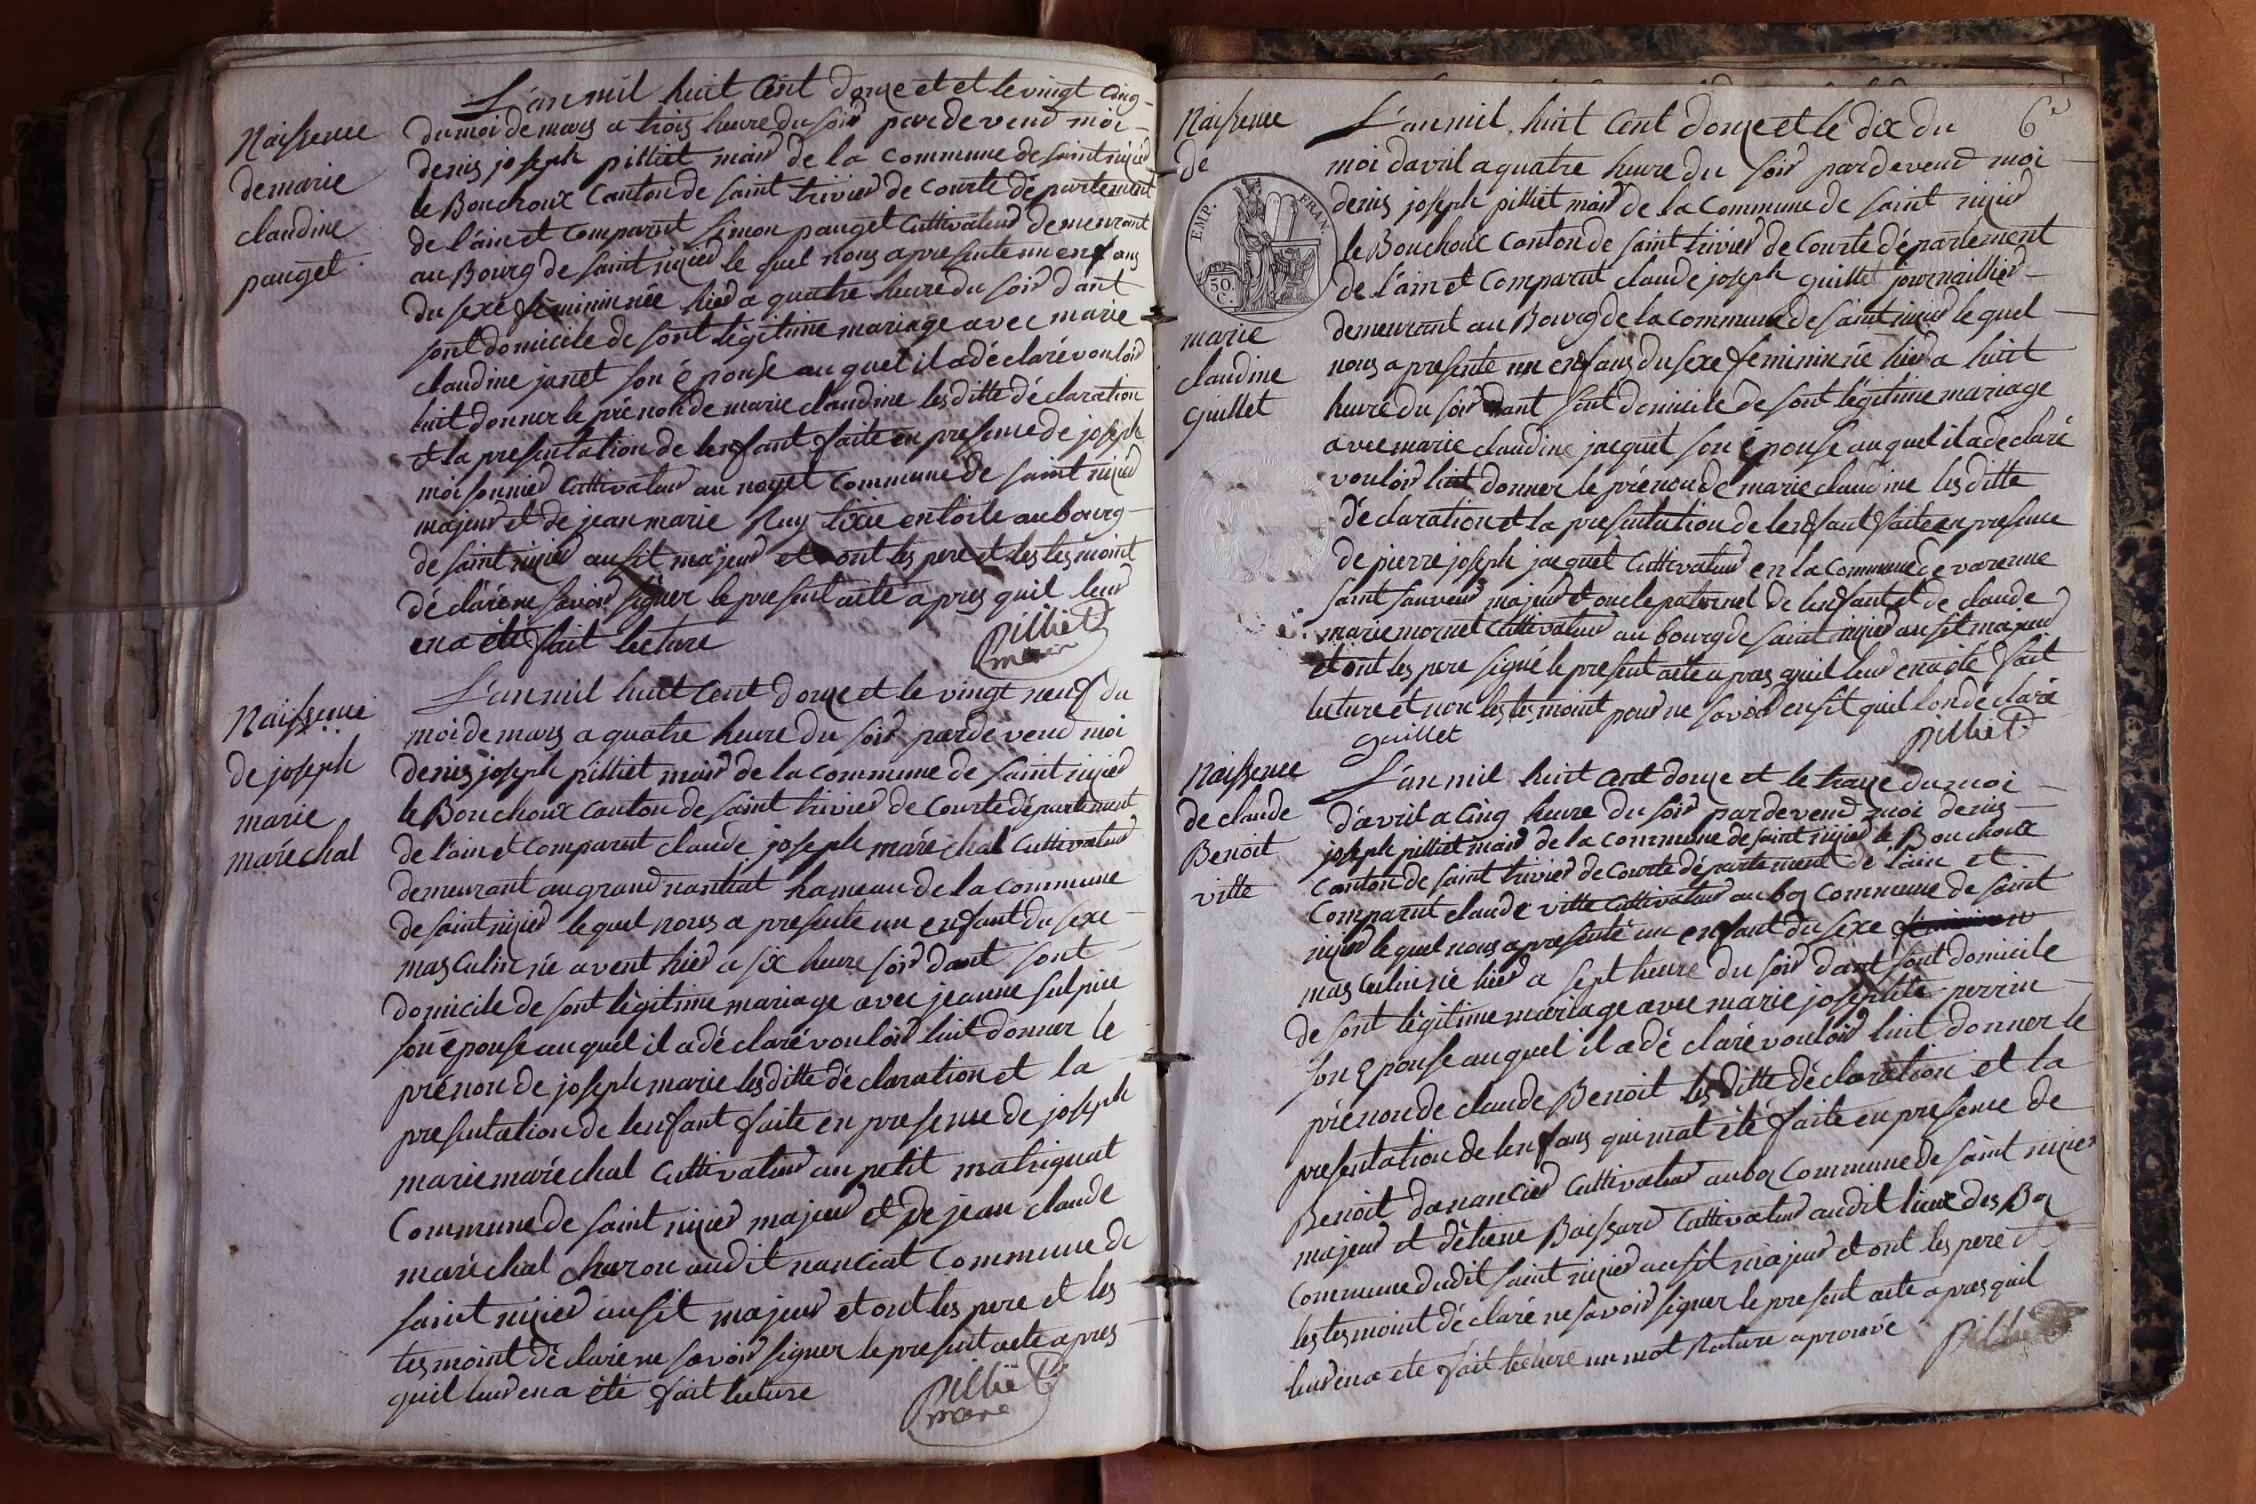 Naissence
de marie
claudine
panget
L'an mil huit Cent douze et et le vingt cinq
du moi de mars a trois heure du soir par devend moi
denis joseph pilliet mair de la commune de saint nizier
le Bouchoux Canton de saint trivier de Courte département
de l'ain et comparut simon panget Cultivateur demeurant
au Bourg de saint nizier le quel nous a presente un enfans
du sexe feminin née hier a quatre heure du soir dant
sont domicile de sont légitime mariage avec marie
claudine janet son épouse au quel il a déclaré vouloir
luit donner le prénon de marie claudine les ditte déclaration
et la presentation de lenfant faite en presence de joseph
moisonnier Cultivateur au noyet Commune de saint nizier
majeur et de jean marie Ruy tixie en toile au bourg
de saint nizier ausit majeur et ont les pere et les tesmoint
déclaré ne savoir signer le present acte apres quil leur
en a été fait lecture
pilliet
maire
Naissence
de joseph
marie
maréchal
L'an mil huit Cent douze et le vingt neuf du
moi de mars a quatre heure du soir par devend moi
denis joseph pilliet mair de la commune de saint nizier
le Bouchoux canton de saint trivier de Courte département
de l'ain et comparut claude joseph maréchal Cultivateur
demeurant au grand nantiat hameau de la commune
de saint nizier le quel nous a presente un enfant du sexe
masculin née avent hier a six heure soir dant sont
domicile de sont légitime mariage avec jeanne sulpice
son épouse au quel il a déclaré vouloir luit donner le
prénon de joseph marie les ditte déclaration et la
presentation de lenfant faite en presence de joseph
marie maréchal Cultivateur au petit matrignat
Commune de saint nizier majeur et de jean claude
maréchal charon au dit nanciat Commune de
saint nizier ausit majeur et ont les pere et les
tesmoint déclaré ne savoir signer le present acte apres
quil leur en a été fait lecture
pilliet
maire
6e
Naissence
de
EMP. FRAN.
50. C.
marie
claudine
guillet
L'an mil huit Cent douze et le dix du
moi davril a quatre heure du soir par devend moi
denis joseph pilliet mair de la commune de saint nizier
le Bouchoux canton de saint trivier de Courte département
de l'ain et Comparut claude joseph guillet journaillier
demeurant au Bourg de la commune de saint nizier le quel
nous a presente un enfans du sexe feminin née hier a huit
heure du soir dant sont domicile de sont légitime mariage
avec marie claudine jacquet son épouse au quel il a declaré
vouloir luit donner le prénon de marie claudine les ditte
déclaration et la presentation de lenfant faite en presence
de pierre joseph jacquet Cultivateur en la commune de varenne
saint sauveur majeur et oncle paternel de lenfant et de claude
marie mornet Cultivateur au bourg de saint nizier ausit majeur
et ont les pere signé le present acte apres quil leur en a été fait
lecture et non les tesmoint pour ne savoir ensit quil lon déclaré
guillet
pilliet
Naissence
de claude
Benoit
ville
L'an mil huit Cent douze et le traze du moi
d'avril a cinq heure du soir par devend moi denis
joseph pilliet mair de la commune de saint nizier le Bouchoux
canton de saint trivier de Courte département de l'ain et
Comparut claude ville Cultivateur au boz commune de saint
nizier le quel nous a presenté un enfant du sexe feminin
masculin née hier a sept heure du soir dant sont domicile
de sont légitime mariage avec marie josephte perrin
son épouse au quel il a dé claré vouloir luit donner le
prénon de claude Benoit les ditte déclaration et la
presentation de lenfans qui mat été faite en presence de
Benoit danancier Cultivateur au boz Commune de saint nizier
majeur et détiene Boissard Cultivateur au dit lieux des Boz
Commune dudit saint nizier ausit majeur et ont les pere et
les tesmoint déclaré ne savoir signer le present acte apres quil
leur en a ete fait lecture un mot Rature aprouvé
pilliet